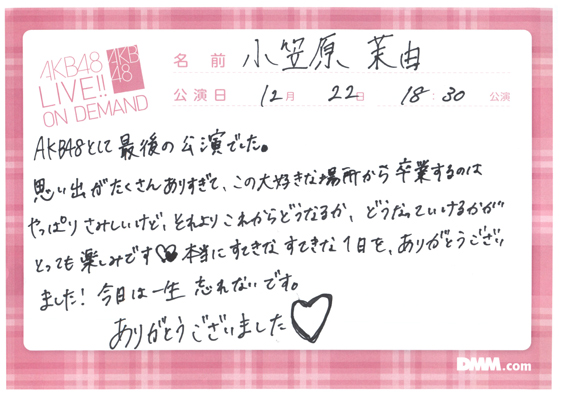 AKB48
LIVE!!
ON DEMAND
AKB
48
名前 小笠原 茉由
公演日 12月 22日 18:30 公演
AKB48として最後の公演でした。
思い出がたくさんありすぎて、この大好きな場所から卒業するのは
やっぱりさみしいけど、それよりこれからどうなるか、どうなっていけるかが
とっても楽しみです♡♡本当にすてきなすてきな1日を、ありがとうござい
ました!今日は一生忘れないです。
ありがとうございました♡
DMM.com